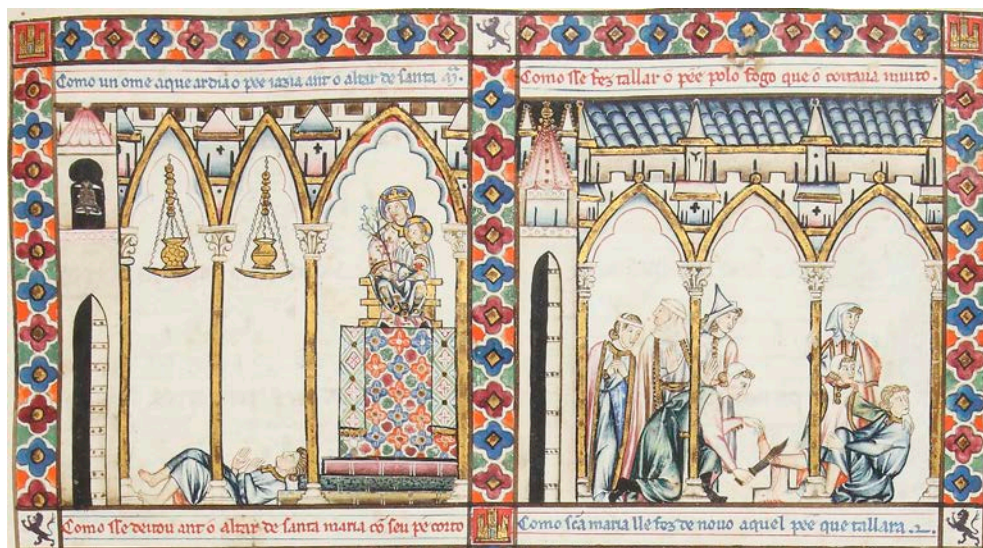 Como un ome a que ardia o pee iazia ant o altar de santa M.
Como sse fez tallar o pee polo fogo que o coitaua muito.
Como sse deitou ant o altar de santa maria cõ seu pe corto
Como sc̃a maria lle fez de nouo aquel pee que tallara .2.